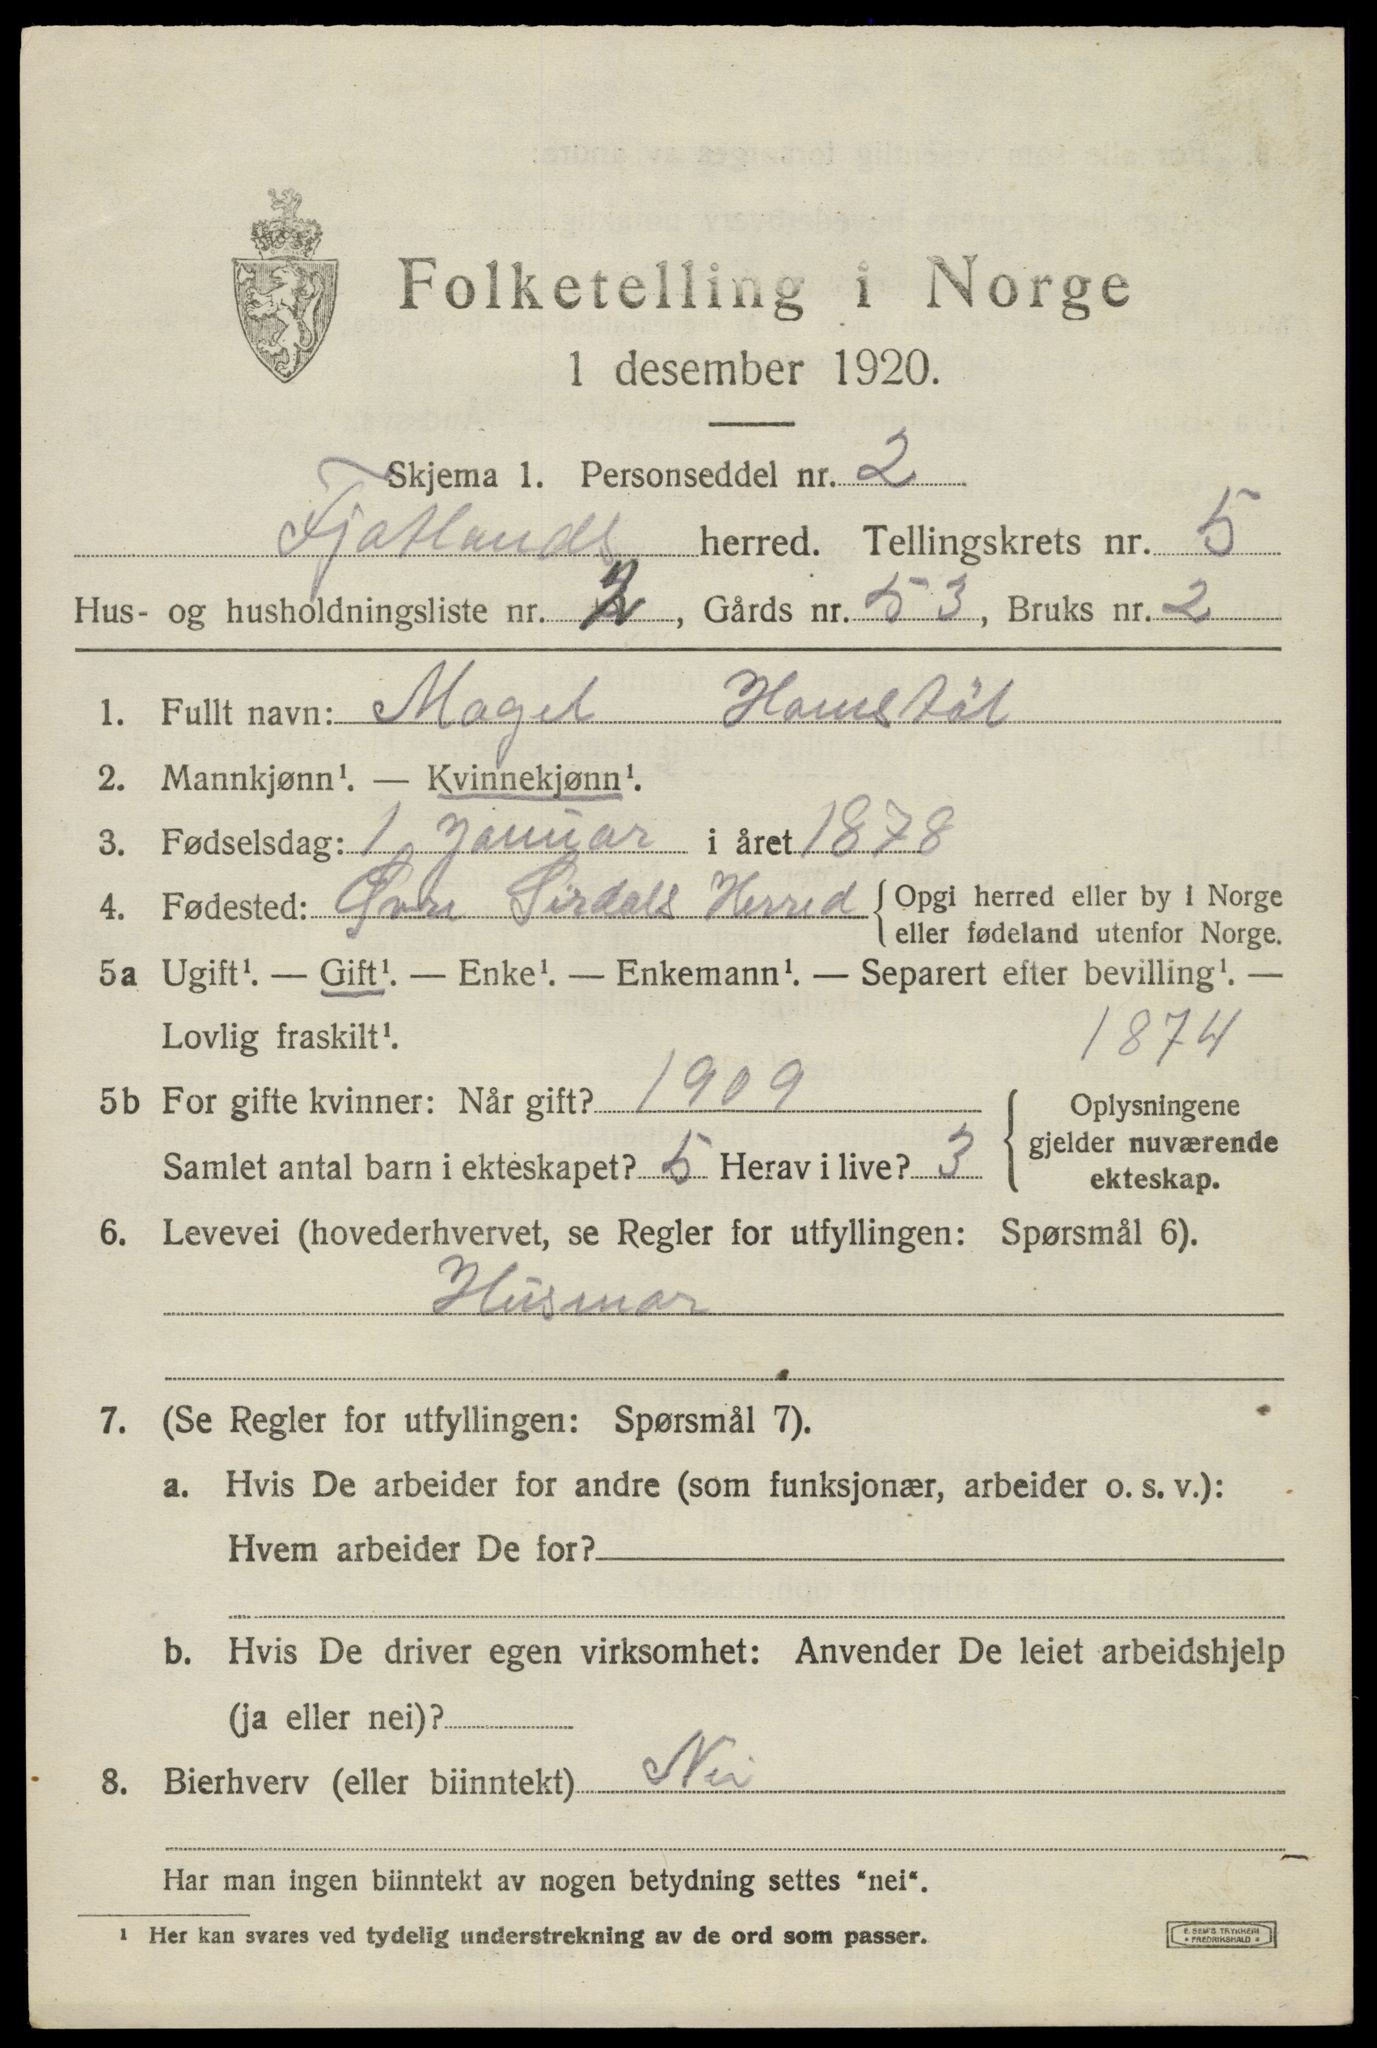 Folketelling i Norge
1 desember 1920.
Skjema 1. Personseddel nr. 2
Fjotlands herred. Tellingskrets nr. 5
Hus- og husholdningsliste nr. 2, Gårds nr. 53, Bruks nr. 2
1. Fullt navn: Magel Homstöl
2. Mannkjønn¹. — Kvinnekjønn¹.
3. Fødselsdag: 1 Januar i året 1878
4. Fødested: Øvre Sirdals Herred { Opgi herred eller by i Norge
eller fødeland utenfor Norge.
5a Ugift¹. — Gift¹. — Enke¹. — Enkemann¹. — Separert efter bevilling¹. —
Lovlig fraskilt¹.
1874
5b For gifte kvinner: Når gift? 1909
Samlet antal barn i ekteskapet? 5 Herav i live? 3
{ Oplysningene
gjelder nuværende
ekteskap.
6. Levevei (hovederhvervet, se Regler for utfyllingen: Spørsmål 6).
Husmor
7. (Se Regler for utfyllingen: Spørsmål 7).
a. Hvis De arbeider for andre (som funksjonær, arbeider o. s. v.):
Hvem arbeider De for?
b. Hvis De driver egen virksomhet: Anvender De leiet arbeidshjelp
(ja eller nei)?
8. Bierhverv (eller biinntekt) Nei
Har man ingen biinntekt av nogen betydning settes "nei".
¹ Her kan svares ved tydelig understrekning av de ord som passer.
E. SEM'S TRYKKERI
* FREDRIKSHALD *